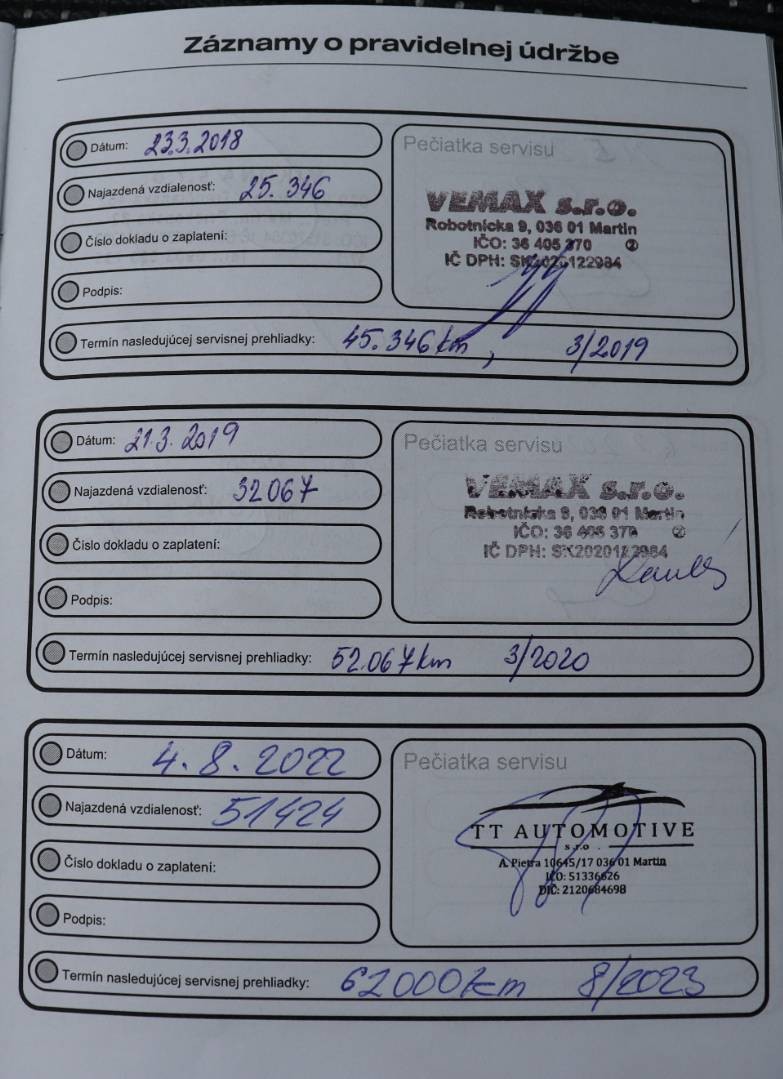 Záznamy o pravidelnej údržbe
Dátum: 23.3.2018
Najazdená vzdialenosť: 25.346
Číslo dokladu o zaplatení:
Podpis:
Pečiatka servisu
VEMAX s.r.o.
Robotnícka 9, 036 01 Martin
IČO: 36 405 370 ②
IČ DPH: SK2020122984
Termín nasledujúcej servisnej prehliadky: 45.346 km, 3/2019
Dátum: 21.3.2019
Najazdená vzdialenosť: 32067
Číslo dokladu o zaplatení:
Podpis:
Pečiatka servisu
VEMAX s.r.o.
Robotnícka 9, 036 01 Martin
IČO: 36 405 370 ②
IČ DPH: SK2020122984
Termín nasledujúcej servisnej prehliadky: 52.067 km 3/2020
Dátum: 4.8.2022
Najazdená vzdialenosť: 51424
Číslo dokladu o zaplatení:
Podpis:
Pečiatka servisu
TT AUTOMOTIVE
s.r.o.
A. Pietra 10645/17 036 01 Martin
IČO: 51336626
DIČ: 2120684698
Termín nasledujúcej servisnej prehliadky: 62000km 8/2023